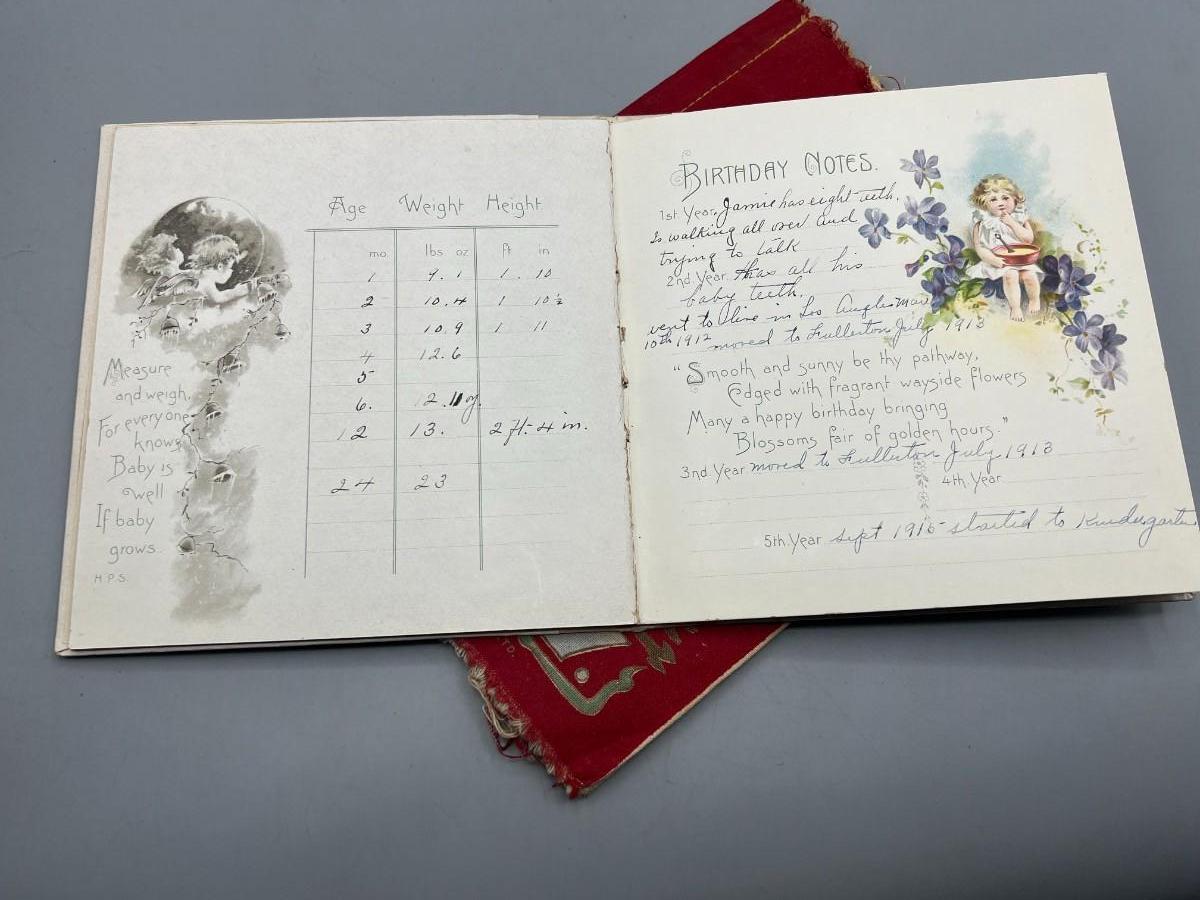 Measure
and weigh,
For everyone
knows
Baby is
well
If baby
grows.
H.P.S.
Age Weight Height
mo. lbs oz ft in
1 9. 1 1. 10
2 10.4 1 10½
3 10.9 1 11
4 12.6
5
6. 12.
12 13. 2 ft. 4 in.
24 23
BIRTHDAY NOTES.
1st Year. Jamie has eight teeth.
Is walking all over and
trying to talk
2nd Year. has all his
baby teeth.
went to live in Los Angles Mar
10th 1912 moved to Fullerton July 1913
"Smooth and sunny be thy pathway,
Edged with fragrant wayside flowers
Many a happy birthday bringing
Blossoms fair of golden hours."
3rd Year moved to Fullerton July 1913
4th Year
5th Year sept 1915 started to Kindergarten
TD.